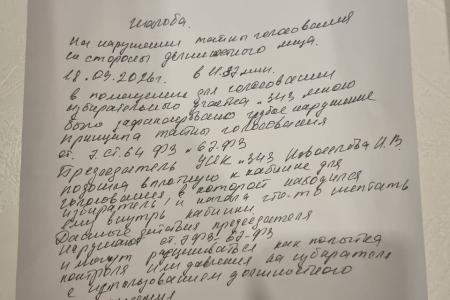 Жалоба.
На нарушении тайны голосования
со стороны должностного лица.
18.09.2026г. в 11.37 мин.
в помещении для голосования
избирательного участка № 343 мною
было зафиксировано грубое нарушение
принципа тайны голосования
от. 7. Ст. 64 ФЗ № 67-ФЗ
Председатель УИК № 343 Новоселова И.В.
подошла вплотную к кабинке для
голосования, в которой находился
избиратель, и начала что-то шептать
ему внутрь кабинки
Данные действия председателя
нарушают ст. 7 ФЗ 67-ФЗ
и могут расцениваться как попытка
контроля или давления на избирателя
с использованием должностного